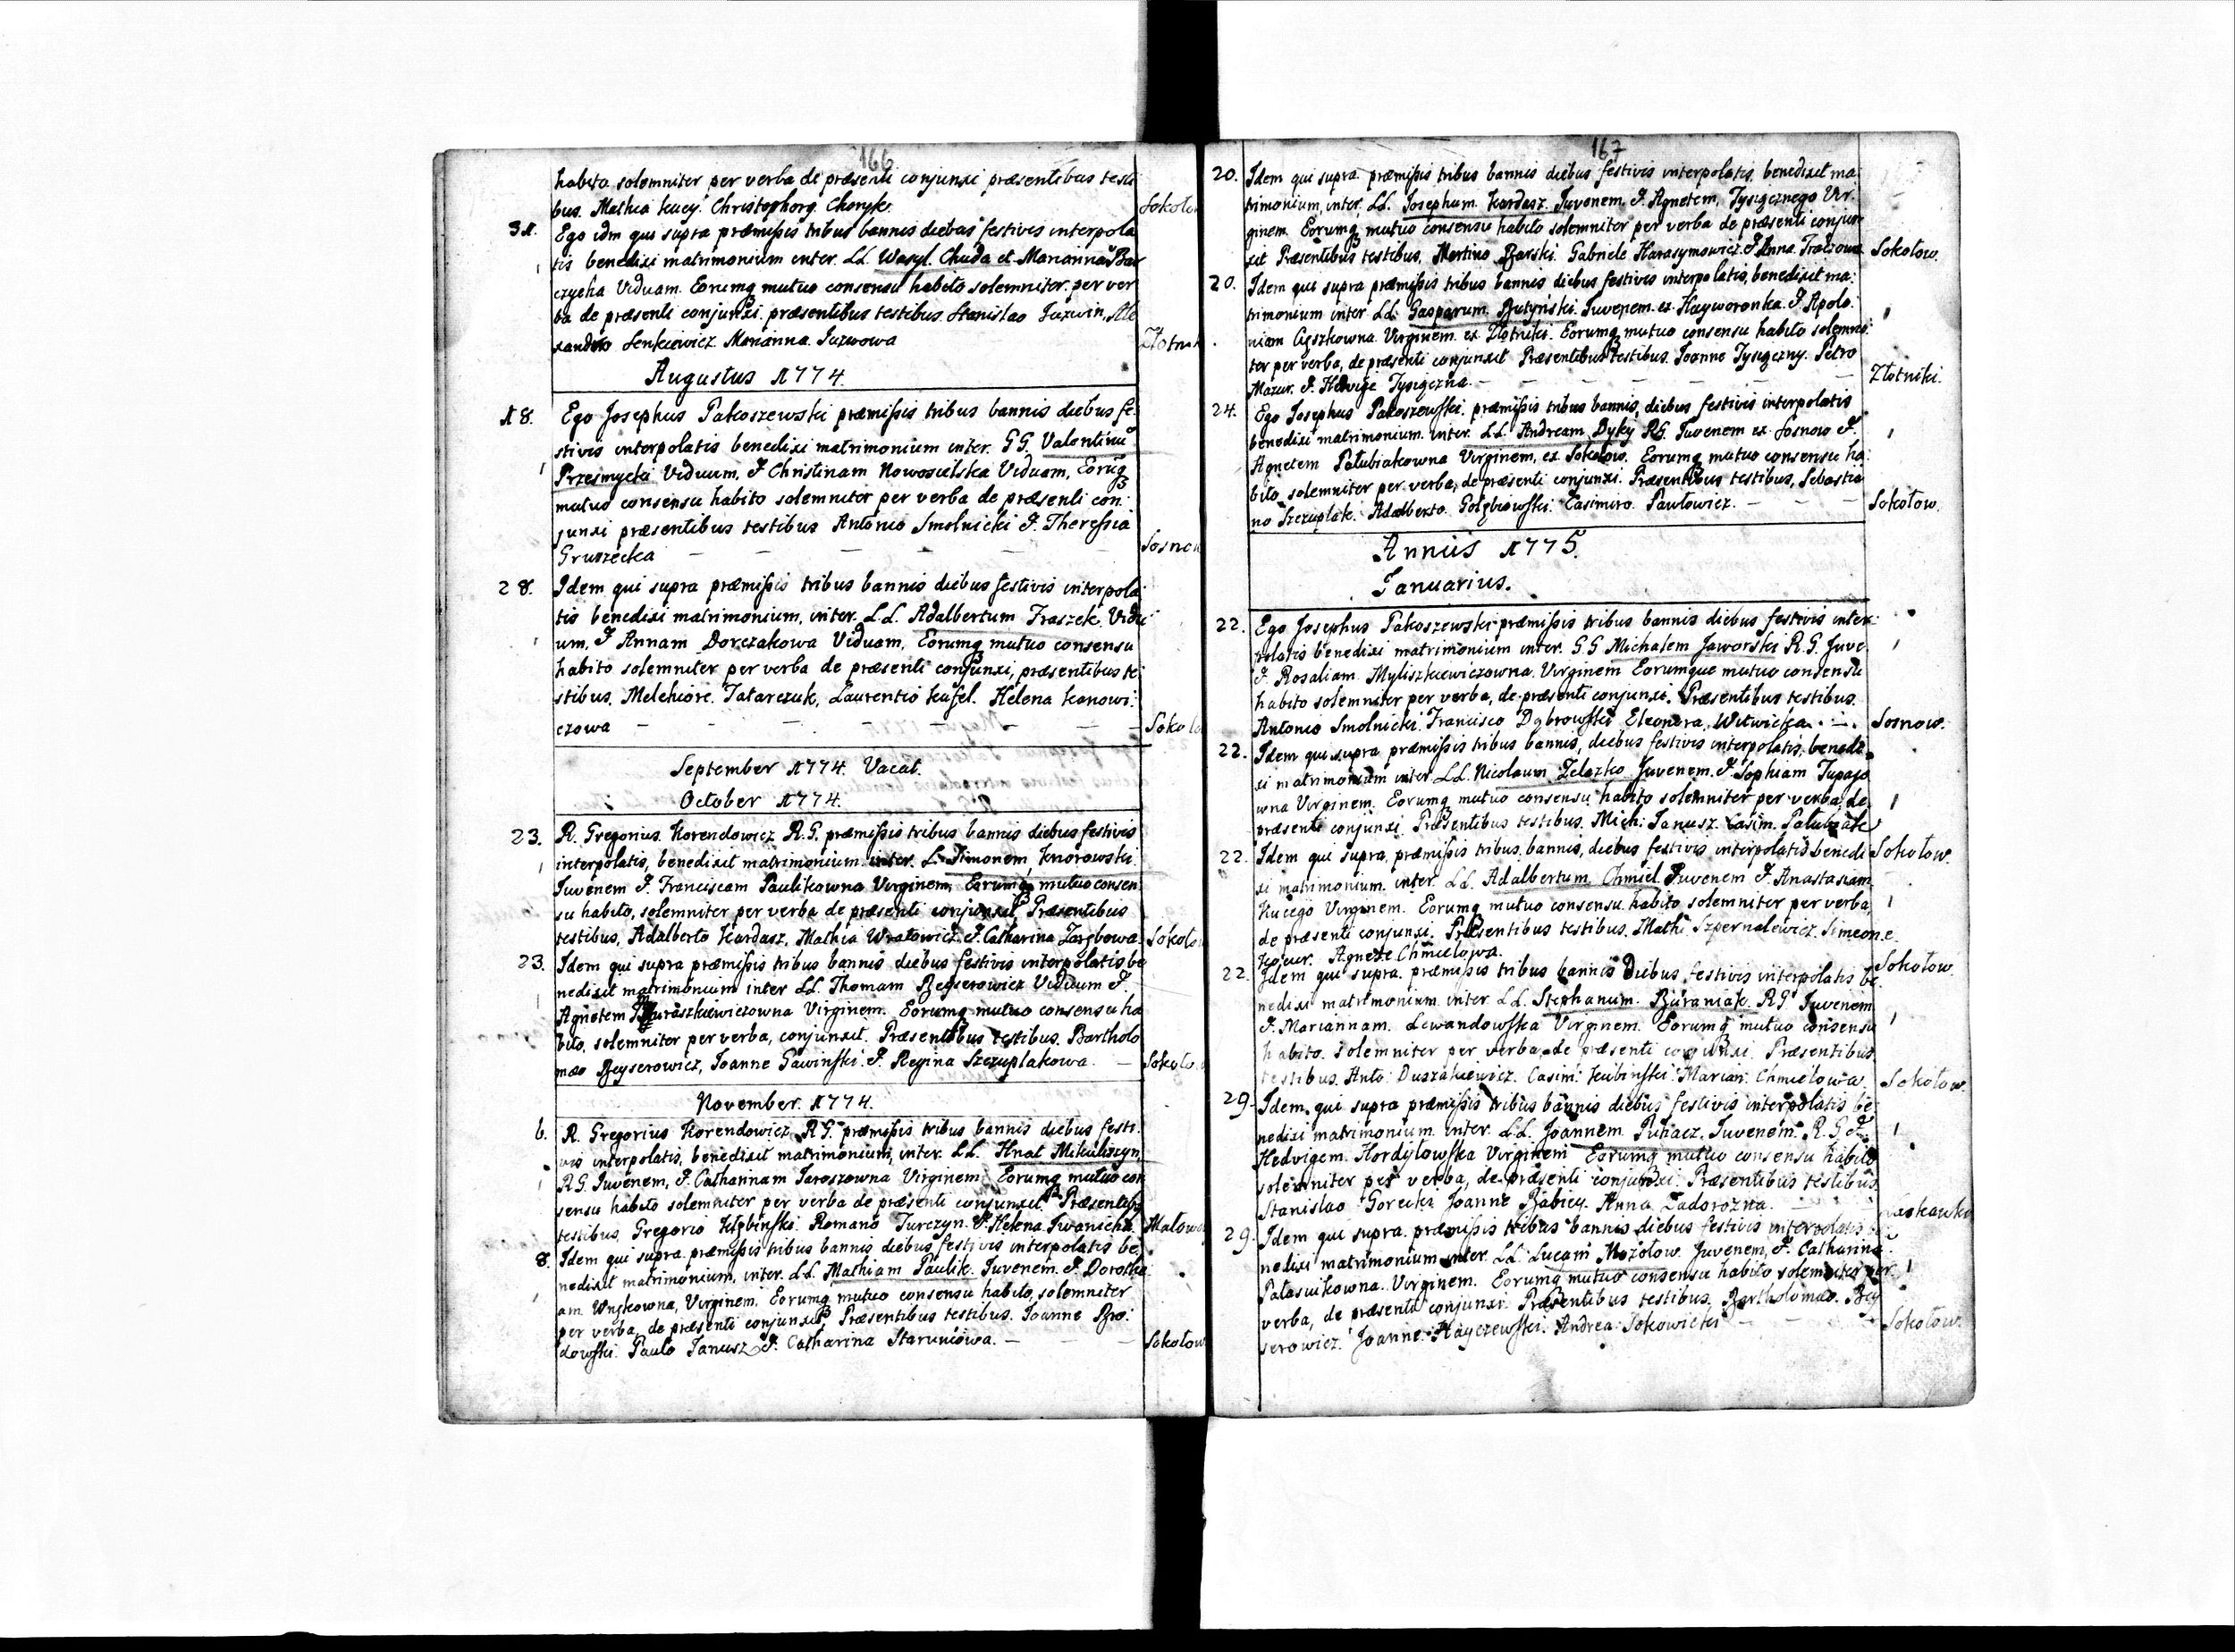 166
habito solemniter per verba de præsenti conjunxi præsentibus testi
bus. Mathia Kucy. Christophorg Choryk. Sokolo
31. Ego idm qui supra præmissis tribus bannis diebus festivis interpola
tis benedixi matrimonium inter. LL. Wasyl. Chuda et Marianna Bar
czycha Viduam. Eorumq mutuo consensu habito solemniter. per ver
ba de præsenti conjunxi. præsentibus testibus. Stanislao Juzwin, Ale
xandro Senkiewicz. Marianna Juzwowa Złotnik
Augustus 1774.
18. Ego Josephus Pakoszewski præmissis tribus bannis diebus fe:
stivis interpolatis benedixi matrimonium inter. GG. Valentinũ
Przesmycki Viduum, & Christinam Nowosielska Viduam, Eorũq
mutuo consensu habito solemniter per verba de præsenti con:
junxi præsentibus testibus Antonio Smolnicki & Theressia
Gruszecka Sosnow
28. Idem qui supra præmissis tribus bannis diebus festivis interpola
tis benedixi matrimonium, inter. LL. Adalbertum Fraszek. Vidu
um, & Annam Dorczakowa Viduam, Eorumq mutuo consensu
habito solemniter per verba de præsenti conjunxi, præsentibus te
stibus. Melchiore. Tatarczuk, Laurentio Kusel. Helena Kanowi:
czowa Sokolo
September 1774. Vacat.
October 1774.
23. R. Gregorius Korendowicz R.G. præmissis tribus bannis diebus festivis
interpolatis, benedixit matrimonium inter. L. Simonem Knorowski.
Juvenem & Franciscam Paulikowna Virginem, Eorumq mutuo consen
su habito, solemniter per verba de præsenti conjunxit, Præsentibus
testibus, Adalberto Kardasz, Mathia Wratowicz & Catharina Zarębowa. Sokolo
23. Idem qui supra præmissis tribus bannis diebus festivis interpolatis be
nedixit matrimonium inter LL. Thomam Beyserowicz Viduum &
Agnetem Muraszkiewiczowna Virginem. Eorumq mutuo consensu ha
bito, solemniter per verba, conjunxit. Præsentibus testibus. Bartholo
mæo Beyserowicz, Joanne Gawinski. & Regina Szczuplakowa. Sokolo
November. 1774.
6. R. Gregorius Korendowicz RG. præmissis tribus bannis diebus festi.
vis interpolatis, benedixit matrimonium, inter. LL. Hnat Mikuliszyn
RG. Juvenem, & Catharinam Jaroszowna Virginem: Eorumq mutuo con
sensu habito solemniter per verba de præsenti conjunxit. Præsentibg
testibus, Gregorio Kłębinski. Romano Turczyn. & Helena Iwanicha Małowo
8. Idem qui supra præmissis tribus bannis diebus festivis interpolatis be.
nedixit matrimonium, inter. LL. Mathiam Paulik. Juvenem. & Dorothe
am Wnękowna, Virginem. Eorumq mutuo consensu habito, solemniter
per verba, de præsenti conjunxit, Præsentibus testibus. Joanne Bro:
dowski. Paulo Janusz & Catharina Staruniowa. Sokołow
167
20. Idem qui supra præmissis tribus bannis diebus festivis interpolatis, benedixit ma:
trimonium, inter. LL. Josephum. Kardasz. Juvenem. & Agnetem, Tysięcznego Vir:
ginem. Eorumq mutuo consensu habito solemniter per verba de præsenti conjun
xit Præsentibus testibus. Martino Barski. Gabriele Harasymowicz. & Anna Traczowa Sokołow.
20. Idem qui supra præmissis tribus bannis diebus festivis interpolatis, benedixit ma:
trimonium inter LL. Gasparum. Butyński. Juvenem. ex. Hayworonka. & Apolo:
niam Ciszkowna. Virginem. ex Złotniki. Eorumq mutuo consensu habito solemni:
ter per verba, de præsenti conjunxit Præsentibus testibus. Joanne Tysięczny. Petro
Mazur. & Hedvige Tysięczna. Złotniki.
24. Ego Josephus Pakoszewski. præmissis tribus bannis, diebus festivis interpolatis
benedixi matrimonium. inter. LL. Andream Dyky RG. Juvenem ex Sosnow &
Agnetem Pałubiakowna Virginem, ex Sokołow. Eorumq mutuo consensu ha:
bito, solemniter per verba, de præsenti conjunxi. Præsentibus testibus, Sebastia
no Szczuplak. Adalberto. Gołębiowski. Casimiro. Pawłowicz. Sokołow.
Annus 1775.
Januarius.
22. Ego Josephus Pakoszewski præmissis tribus bannis diebus festivis inter:
polatis benedixi matrimonium inter. GG Michalem Jaworski R.G. Juve.
& Rosaliam. Myliszkiewiczowna. Virginem Eorumque mutuo consensu
habito solemniter per verba, de præsenti conjunxi. Præsentibus testibus.
Antonio Smolnicki. Francisco Dąbrowski Eleonora. Witwicka. Sosnow.
22. Idem qui supra præmissis tribus bannis, diebus festivis interpolatis, benedi
xi matrimonium inter LL. Nicolaum Zelazko Juvenem. & Sophiam Tupajo
wna Virginem. Eorumq mutuo consensu habito solemniter per verba, de
præsenti conjunxi. Præsentibus testibus. Mich: Janusz. Casim. Palubiak
Sokołow.
22. Idem qui supra, præmissis tribus, bannis, diebus festivis interpolatis benedi
xi matrimonium. inter. LL. Adalbertum Chmiel Juvenem & Anastasiam
Kucego Virginem. Eorumq mutuo consensu habito solemniter per verba,
de præsenti conjunxi. Præsentibus testibus. Mathi. Szpernalewicz. Simeone.
Agnete Chmielowa. Sokołow.
22. Idem qui supra. præmissis tribus bannis Diebus, festivis interpolatis be:
nedixi matrimonium. inter. LL. Stephanum. Buraniak. RG Juvenem
& Mariannam. Lewandowska Virginem. Eorumq mutuo consensu
habito. Solemniter per verba de præsenti conjunxi. Præsentibus
testibus. Anto: Duszakiewicz. Casim: Kubinski. Marian: Chmielowa. Sokołow.
29. Idem. qui supra præmissis tribus bannis diebus festivis interpolatis be:
nedixi matrimonium. inter. LL. Joannem Puhacz. Juvenem. R.G. &
Hedvigem. Hordyłowska Virginem Eorumq mutuo consensu habito
solemniter per verba, de præsenti conjunxi. Præsentibus testibus
Stanislao Gorecki. Joanne Babicy. Anna Zadorozna.
29. Idem qui supra. præmissis tribus bannis diebus festivis interpolatis
nedixi matrimonium inter. LL. Lucam Mozołow. Juvenem, & Catharina
Pałasiukowna. Virginem. Eorumq mutuo consensu habito solemniter per
verba, de præsenti conjunxi. Præsentibus testibus, Bartholomæo. Bey
serowicz. Joanne Hayczewski. Andrea Sokowicki Sokołow.